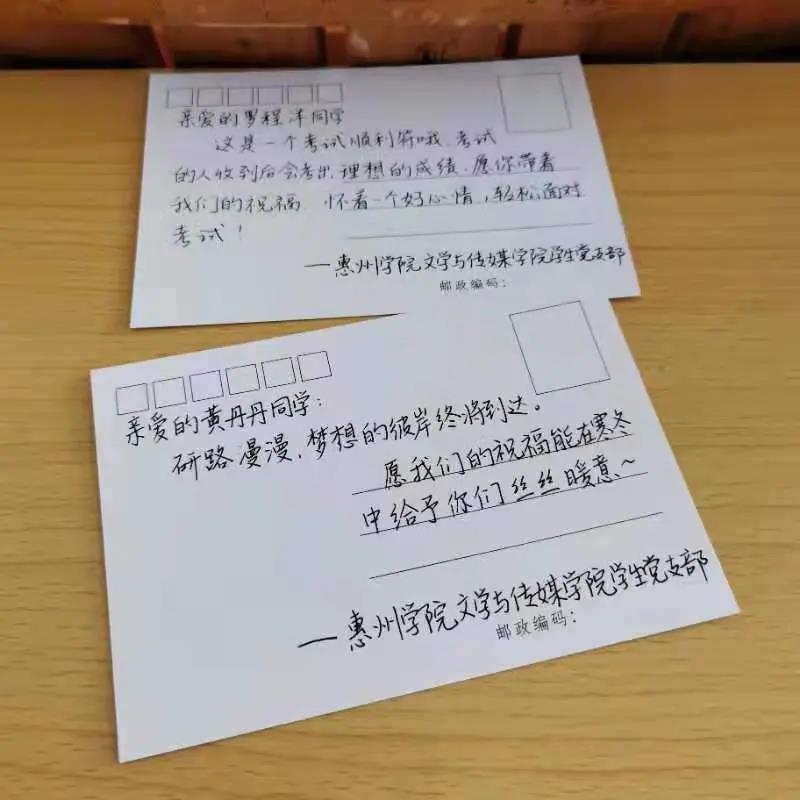 亲爱的罗程洋同学
这是一个考试顺利符哦,考试
的人收到后会考出理想的成绩,愿你带着
我们的祝福 怀着一个好心情,轻松面对
考试!
—惠州学院文学与传媒学院学生党支部
邮政编码:
亲爱的黄丹丹同学:
研路漫漫,梦想的彼岸终将到达。
愿我们的祝福能在寒冬
中给予你们丝丝暖意~
—惠州学院文学与传媒学院学生党支部
邮政编码: